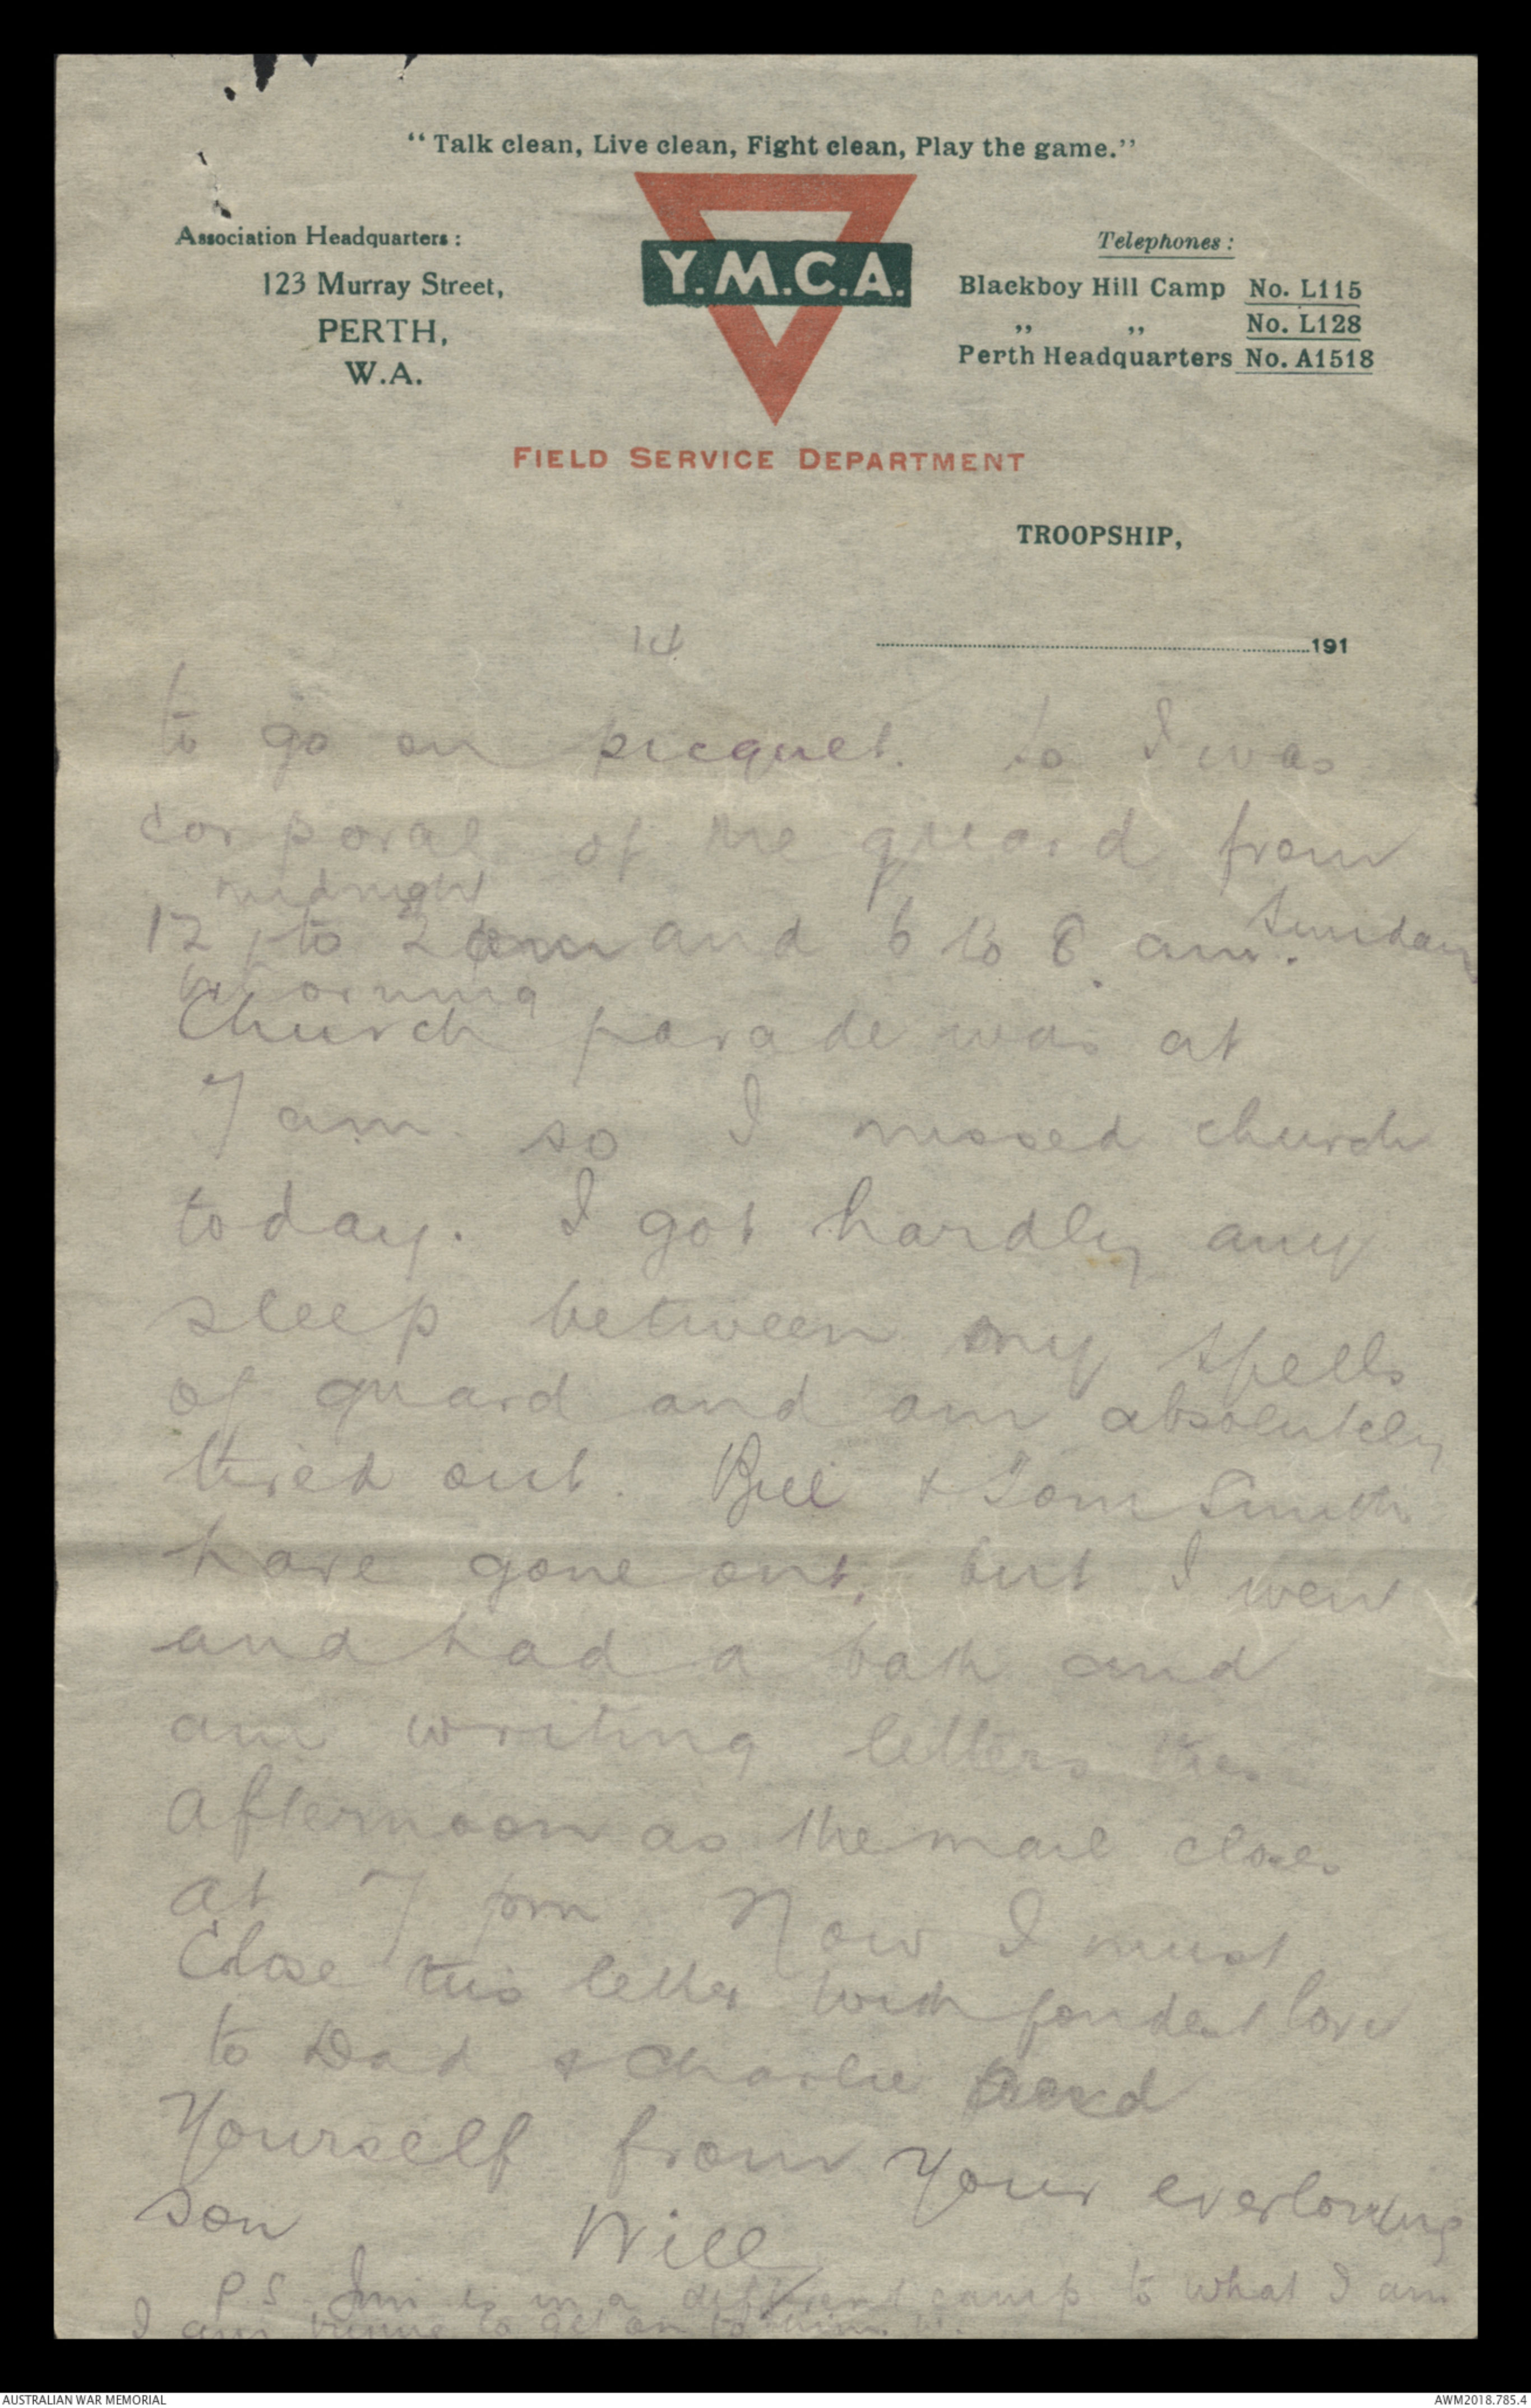 "Talk clean, Live clean, Fight clean, Play the game."
Association Headquarters:
123 Murray Street,
PERTH,
W.A.
Y.M.C.A.
Telephones:
Blackboy Hill Camp No. L115
,, ,, No. L128
Perth Headquarters No. A1518
FIELD SERVICE DEPARTMENT
TROOPSHIP,
14
191
to go on picquet. So I was
corporal of the guard from
midnight
12 to 2 am and 6 to 8 am. Sunday
morning
Church parade was at
7 am. so I missed church
today. I got hardly any
sleep between my spells
of guard and am absolutely
tired out. Bill & Tom Smith
have gone out, but I went
and had a bath and
am writing letters this
afternoon as the mail closes
at 7 pm Now I must
Close this letter with fondest love
to Dad & Charlie and
Yourself from Your everloving
son Will
P.S. Jim is in a different camp to what I am
I am trying to get on to him
AUSTRALIAN WAR MEMORIAL
AWM2018.785.4